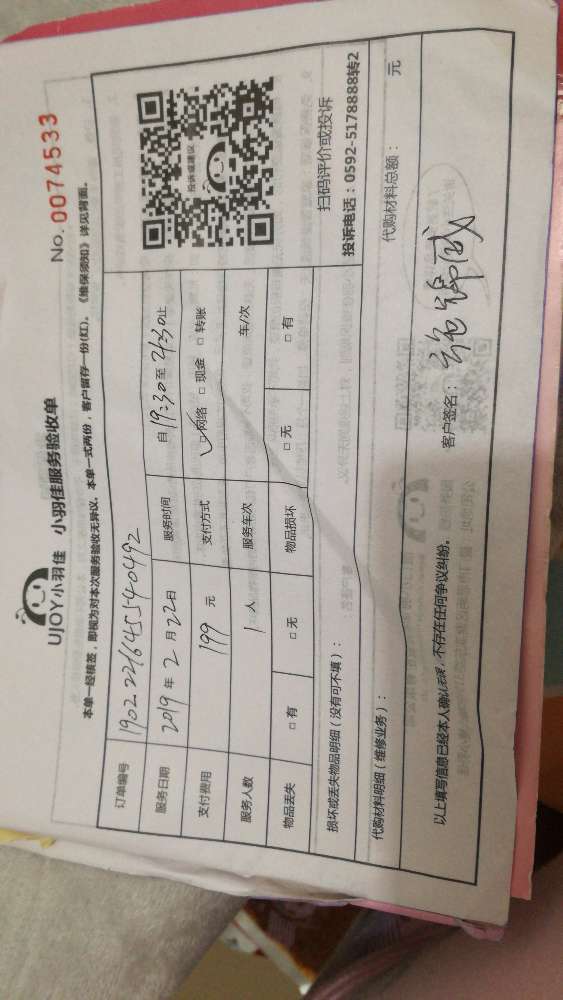 UJOY小羽佳 小羽佳服务验收单
No.0074533
本单一经核签,即视为对本次服务验收无异议。本单一式两份,客户留存一份(红)。《维保须知》详见背面。
订单编号 1902226455140492
服务日期 2019年2月22日 服务时间 自19:30至21:30止
支付费用 199元 支付方式 ☑网络 □现金 □转账
服务人数 1人 服务车次 车/次
物品丢失 □有 □无 物品损坏 □无 □有
投诉或建议
扫码评价或投诉
投诉电话:0592-5178888转2
损坏或丢失物品明细(没有可不填):
代购材料明细(维修业务): 代购材料总额: 元
以上填写信息已经本人确认无误,不存在任何争议纠纷。 客户签名: